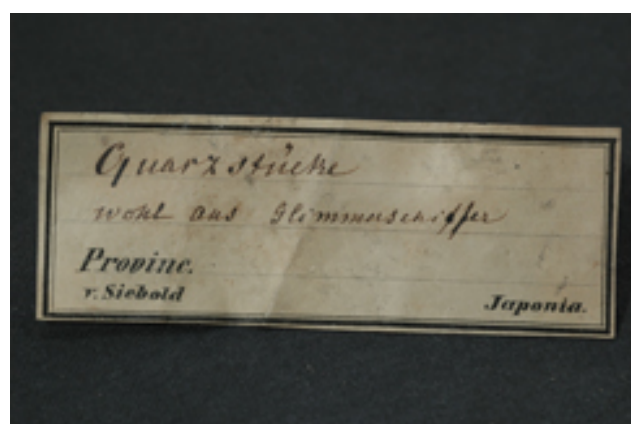 Quarzstücke
wohl aus Glimmerschiffer
Provinc.
v. Siebold
Japonia.